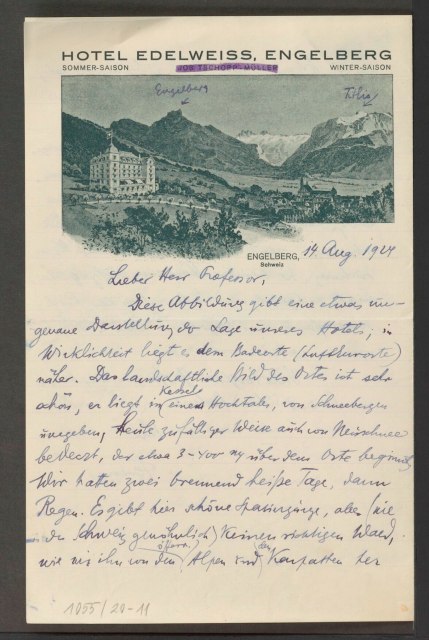 HOTEL EDELWEISS, ENGELBERG
SOMMER-SAISON JOS. TSCHOPP-MÜLLER WINTER-SAISON
Engelberg
Titlis
ENGELBERG, 14 Aug. 1924
Schweiz
Lieber Herr Professor,
Diese Abbildung gibt eine etwas un-
genaue Darstellung der Lage unseres Hotels; in
Wirklichkeit liegt es dem Badeorte (Luftkurorte)
näher. Das landschaftliche Bild des Ortes ist sehr
schön, er liegt im Kessel eines Hochtales, von Schneebergen
umgeben, heute zufälliger Weise auch von Neuschnee
bedeckt, der etwa 3-400 m über dem Orte beginnt.
Wir hatten zwei brennend heiße Tage, dann
Regen. Es gibt hier schöne Spaziergänge, aber (wie
in der Schweiz gewöhnlich) keinen richtigen Wald,
wie wir ihn von den österr. Alpen und den Karpathen her
1055/20-11